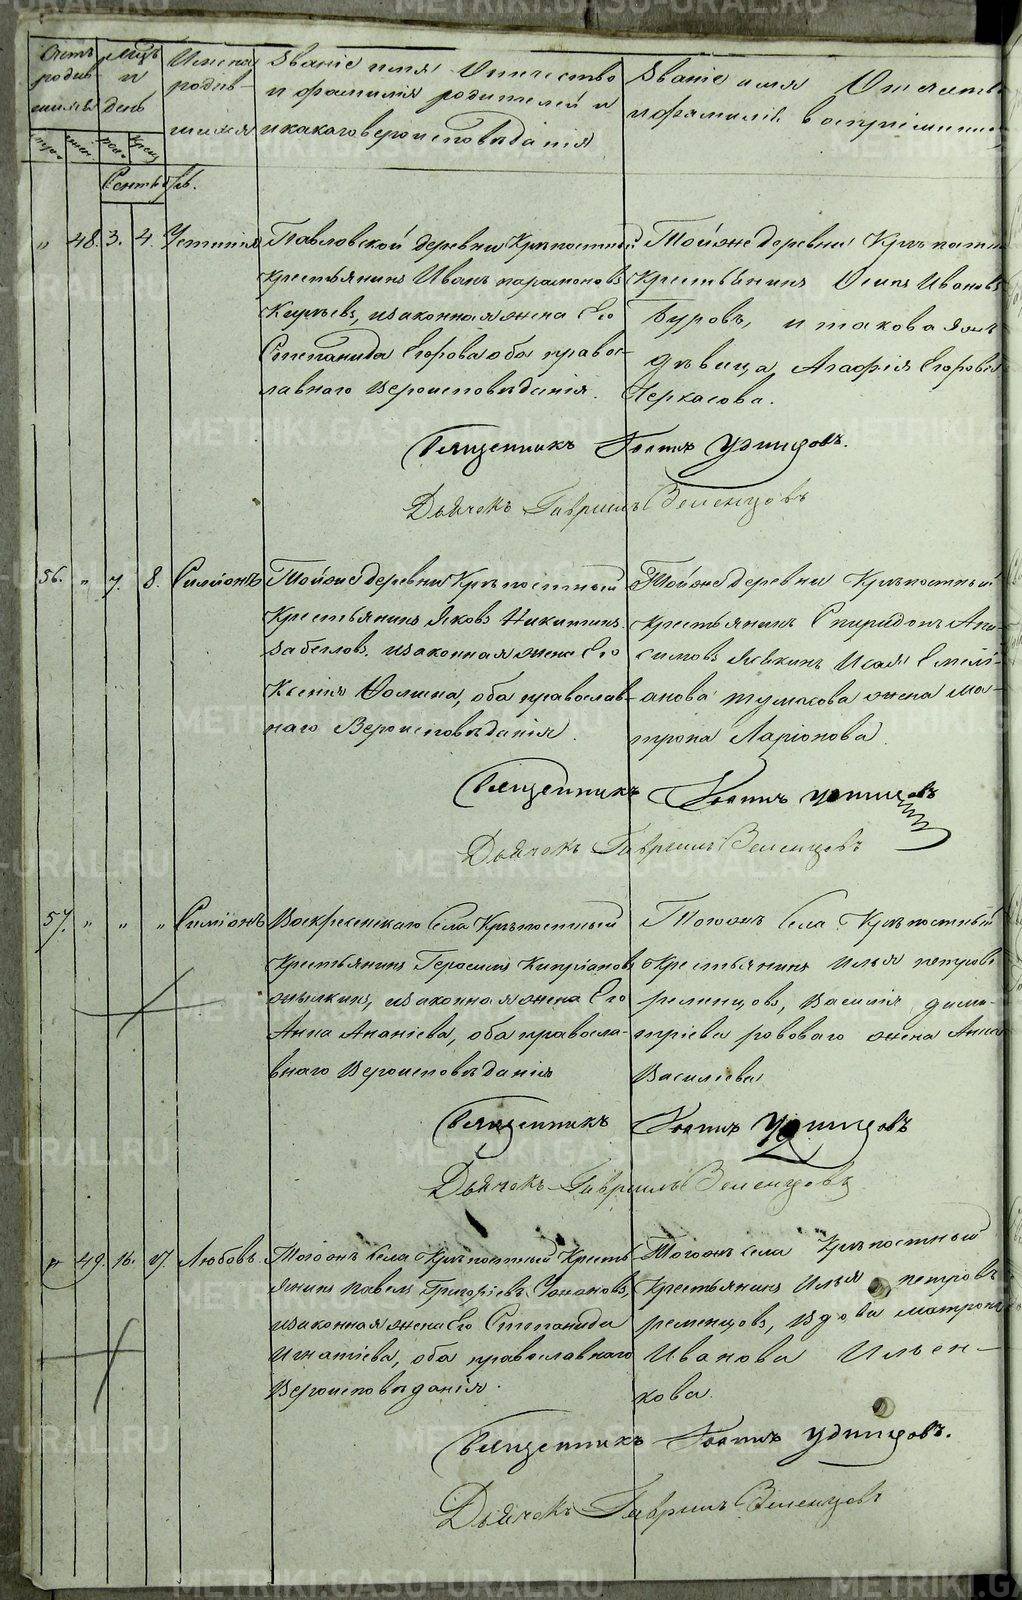 Счетъ родив-шихся
Мцъ и день
Имена родив-шихся
Званіе имя Отчество
и фамилія родителей и
и какаго вероисповѣданія
Званіе имя Отчество
и фамиліи воспріемник
муж. жен. рож. крещ
Сентябрь.
" 48. 3. 4. Устинія
Павловской деревни Крѣпостный
крестьянинъ Иванъ парамоновъ
и законная жена Его
Степанида Егорова оба право-
славнаго вероисповѣданія.
Тойже деревни Крѣпостн
Крестьянинъ Осипъ Ивановъ
Буровъ, и таковая
дѣвица Агафія Егорова
Черкасова.
Священникъ Удинцовъ.
Дьячекъ Гавриилъ Зеленцовъ
56. " 7. 8. Симіонъ
Тойже деревни Крѣпостный
Крестьянинъ Яковъ Никитинъ
Забеловъ. и законная жена Его
Ксенія Фомина, оба православ-
наго Вероисповѣданія.
Тойже деревни Крѣпостный
крестьянинъ Спиридонъ Ани-
симовъ Явкинъ Исая Емелі-
анова тумасова жена Ма-
трона Ларіонова
Священникъ Удинцовъ
Дьячекъ Гавриилъ Зеленцовъ
57. " " " Симіонъ
Воскресенскаго Села Крѣпостный
Крестьянинъ Герасимъ Кипріановъ
и законная жена Его
Анна Ананіева, оба правосла-
внаго Вероисповѣданія
Тогожъ Села Крѣпостный
Крестьянинъ Илья петровъ
ременцовъ, Василія дими-
тріева жена Анна
Василіева
Священникъ Удинцовъ
Дьячекъ Гавриилъ Зеленцовъ
" 49. 16. 17. Любовь.
Тогожъ Села Крѣпостный Кресть-
янинъ павелъ Григоріевъ
и законная жена Его Степанида
Игнатіева, оба православнаго
Вероисповѣданія.
Тогожъ села Крѣпостный
Крестьянинъ Илья петровъ
ременцовъ, вдова матрона
Иванова Ильен-
кова.
Священникъ Удинцовъ.
Дьячекъ Гавриилъ Зеленцовъ
METRIKI.GASO-URAL.RU